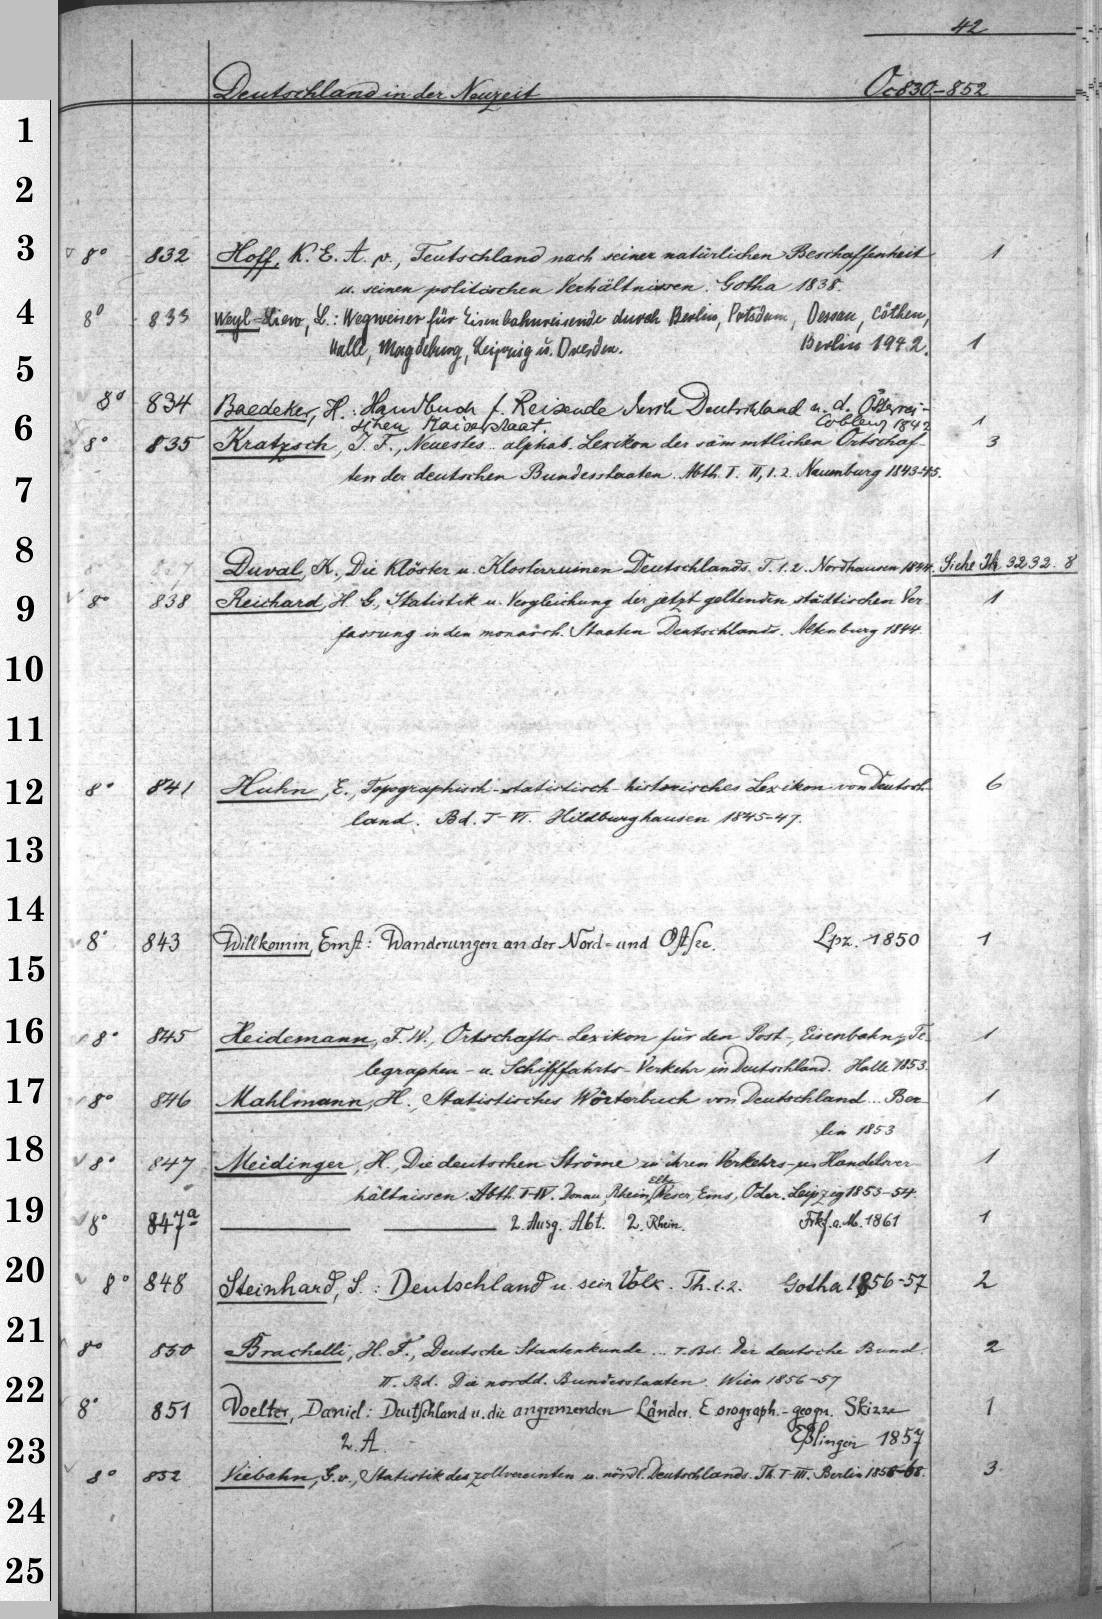 42
Deutschland in der Neuzeit Oc 830-852
1
2
3
8° 832 Hoff, K. E. A. v., Teutschland nach seiner natürlichen Beschaffenheit 1
u. seinen politischen Verhältnissen. Gotha 1838.
4
8° 833 Weyl, L.: Wegweiser für Eisenbahnreisende durch Berlin, Potsdam, Dessau, Cöthen,
Halle, Magdeburg, Leipzig u. Dresden. Berlin 1842. 1
5
8° 834 Baedeker, H.: Handbuch f. Reisende durch Deutschland u. d. Österrei-
chischen Kaiserstaat. Coblenz 1842 1
6
8° 835 Kratzsch, J. F., Neuestes .. alphab. Lexikon der sämmtlichen Ortschaf-
3
ten der deutschen Bundesstaaten. Abth. I. II, 1. 2. Naumburg 1843-45.
7
8
Duval, K., Die Klöster u. Klosterruinen Deutschlands. T. 1. 2. Nordhausen 1844. Siehe 3232. 8
9
8° 838 Reichard, H. G., Statistik u. Vergleichung der jetzt geltenden städtischen Ver- 1
fassung in den monarch. Staaten Deutschlands. Altenburg 1844.
10
11
12
8° 841 Huhn, E., Topographisch-statistisch-historisches Lexikon von Deutsch- 6
land. Bd. I-VI. Hildburghausen 1845-47.
13
14
8° 843 Willkomm, Ernst: Wanderungen an der Nord- und Ostsee. Lpz. 1850 1
15
16
8° 845 Heidemann, F. W., Ortschafts-Lexikon für den Post-, Eisenbahn-, Te- 1
legraphen- u. Schifffahrts-Verkehr in Deutschland. Halle 1853.
17
8° 846 Mahlmann, H., Statistisches Wörterbuch von Deutschland ... Ber- 1
lin 1853
18
8° 847 Meidinger, H., Die deutschen Ströme in ihren Verkehrs- u. Handelsver- 1
hältnissen. Abth. I-IV. Donau, Rhein, Elbe Weser, Ems, Oder. Leipzig 1853-54.
19
8° 847a 2. Ausg. Abt. 2. Rhein. Frkf. a. M. 1861 1
20
8° 848 Steinhard, S.: Deutschland u. sein Volk. Th. 1. 2. Gotha 1856-57 2
21
8° 850 Brachelli, H. F., Deutsche Staatenkunde ... I. Bd. Der deutsche Bund. 2
II. Bd. Die nordd. Bundesstaaten. Wien 1856-57
22
8° 851 Voelter, Daniel: Deutschland u. die angrenzenden Länder. E orograph.-geogn. Skizze 1
2. A. Eßlingen 1857
23
8° 852 Viebahn, G. v., Statistik des zollvereinten u. nördl. Deutschlands. Th. I-III. Berlin 1858-68. 3
24
25